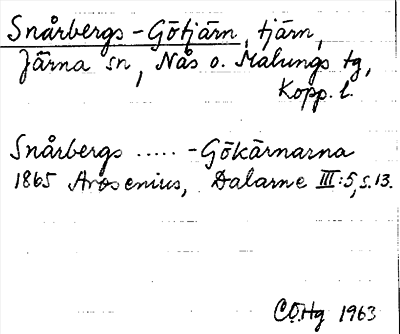 Snårbergs-Götjärn, tjärn,
Järna sn, Nås o. Malungs tg,
Kopp. l.
Snårbergs ..... -Gökärnarna
1865 Arosenius, Dalarne III:5, s.13.
CÖHg 1963